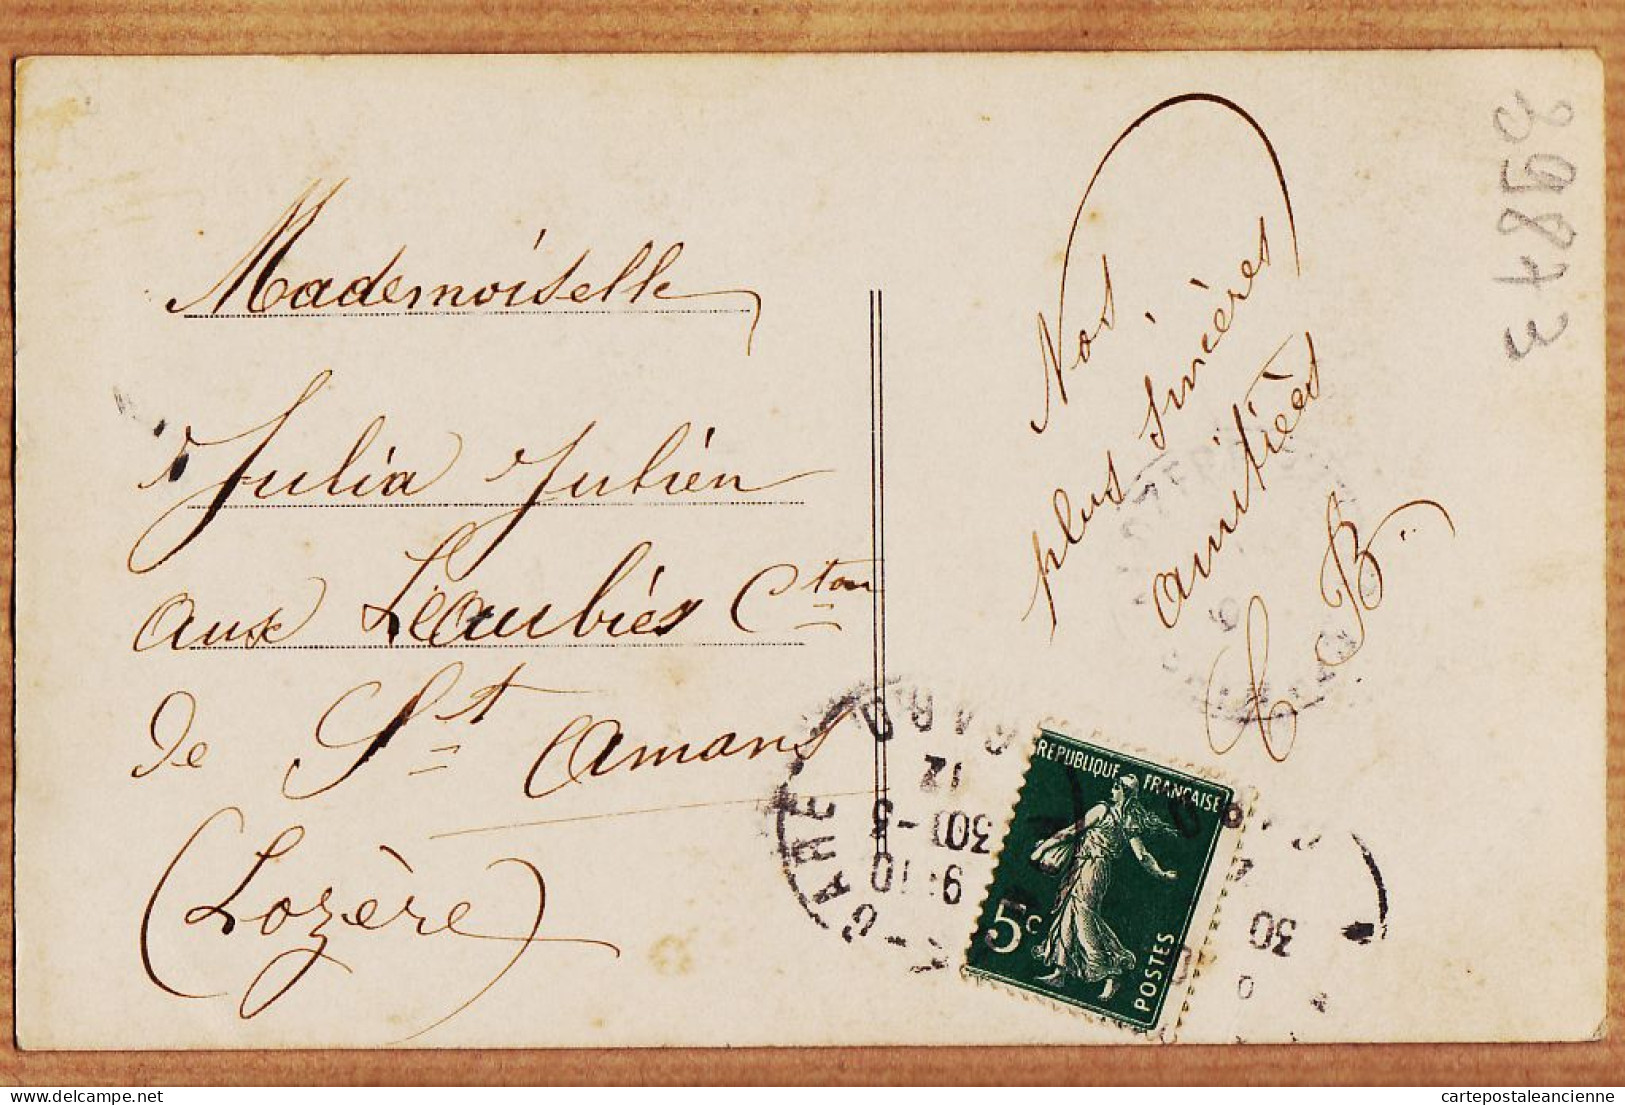 Mademoiselle
Julia Julien
aux Léaubiés Cton
de St Amans
(Lozère)
Nos
plus sincères
amitiés
C B..
39873
RÉPUBLIQUE FRANÇAISE
5c
POSTES
GARE
GARD
9:10
30-3
12
30
delcampe.net
cartepostaleancienne